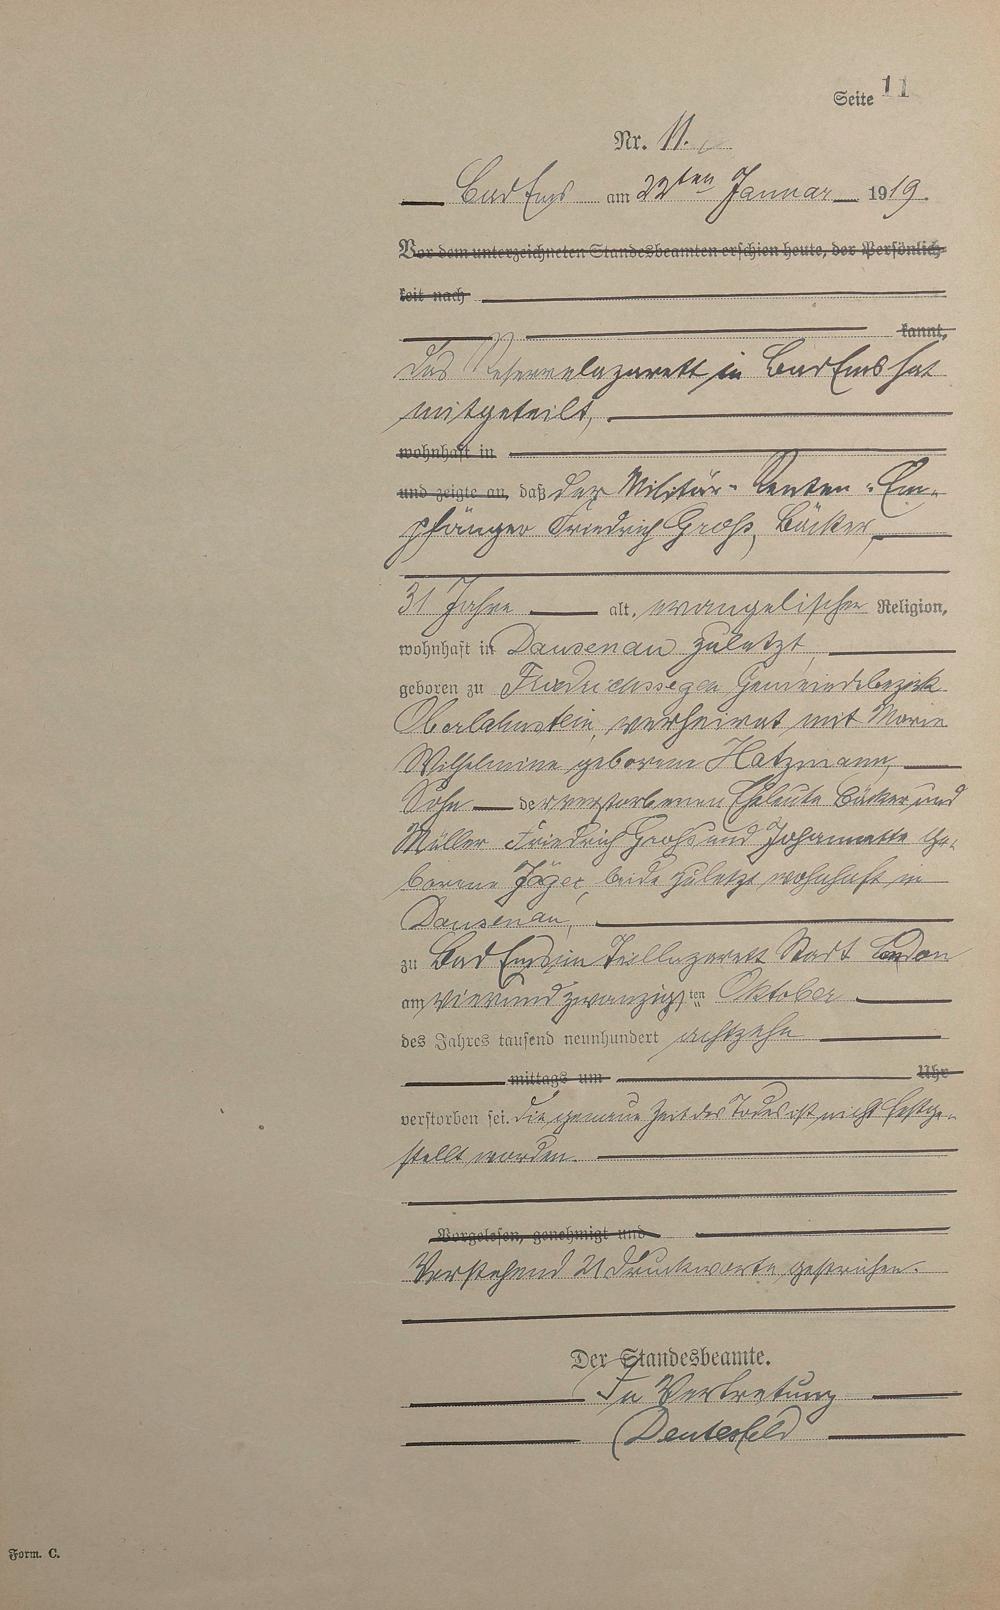 Seite 11
Nr. 11.
Bad Ems am 22ten Januar 1919.
Vor dem unterzeichneten Standesbeamten erschien heute, der Persönlich-
keit nach
kannt,
Das Reservelazarett in Bad Ems hat
mitgeteilt,
wohnhaft in
und zeigte an, daß der Militär-Renten-Em-
pfänger Friedrich Groß, Bäcker,
31 Jahre alt, evangelischer Religion,
wohnhaft in Dausenau zuletzt,
geboren zu Friedrichssegen Gemeindebezirk
Oberlahnstein, verheirat mit Marie
Wilhelmine geborene Hatzmann,
Sohn der verstorbenen Eheleute Bäcker und
Müller Friedrich Groß und Johannette ge-
borene Jäger, beide zuletzt wohnhaft in
Dausenau,
zu Bad Ems im Teillazarett Stadt London
am vierundzwanzigsten Oktober
des Jahres tausend neunhundert achtzehn
mittags um Uhr
verstorben sei. Die genaue Zeit des Todes ist nicht festge-
stellt worden.
Vorgelesen, genehmigt und
Vorstehend 21 Druckworte gestrichen.
Der Standesbeamte.
In Vertretung
Form. C.